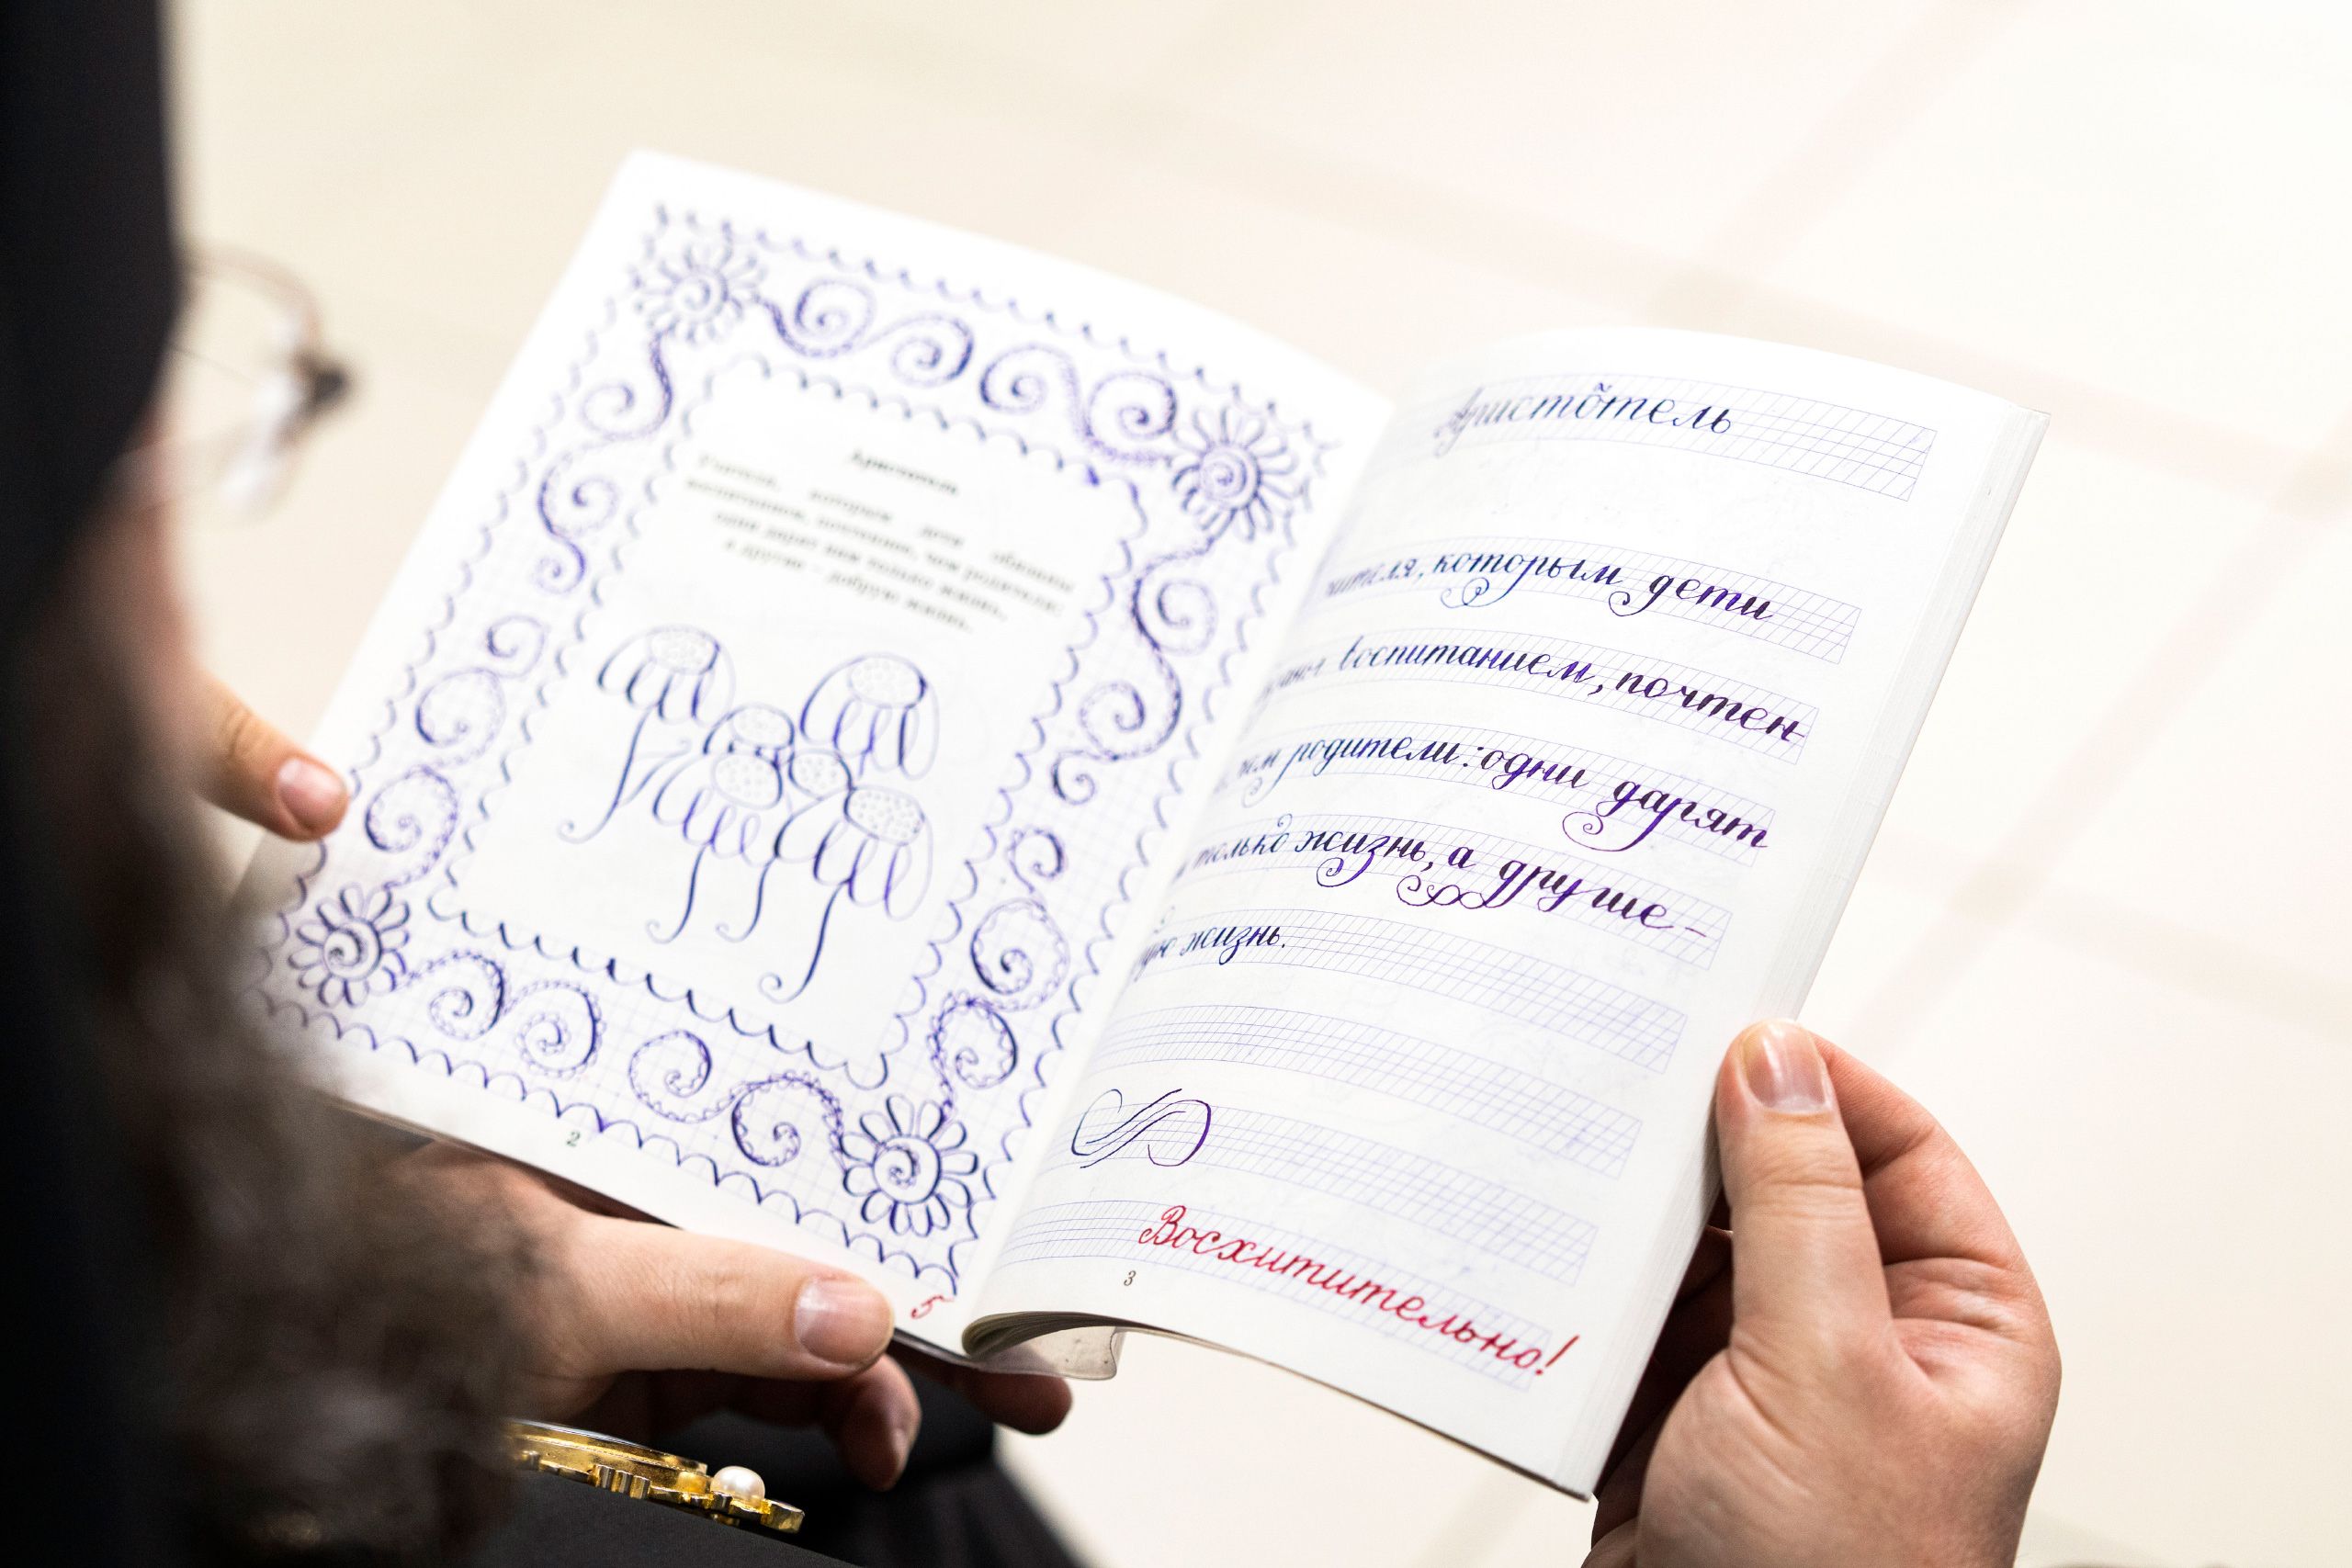 Аристотель
Учителя, которым дети обязаны
воспитанием, почтеннее, чем родители:
одни дарят нам только жизнь,
а другие – добрую жизнь.
2
5
Аристотель
которым дети
воспитанием, почтен
чем родители: одни дарят
только жизнь, а другие-
жизнь.
3
Восхитительно!